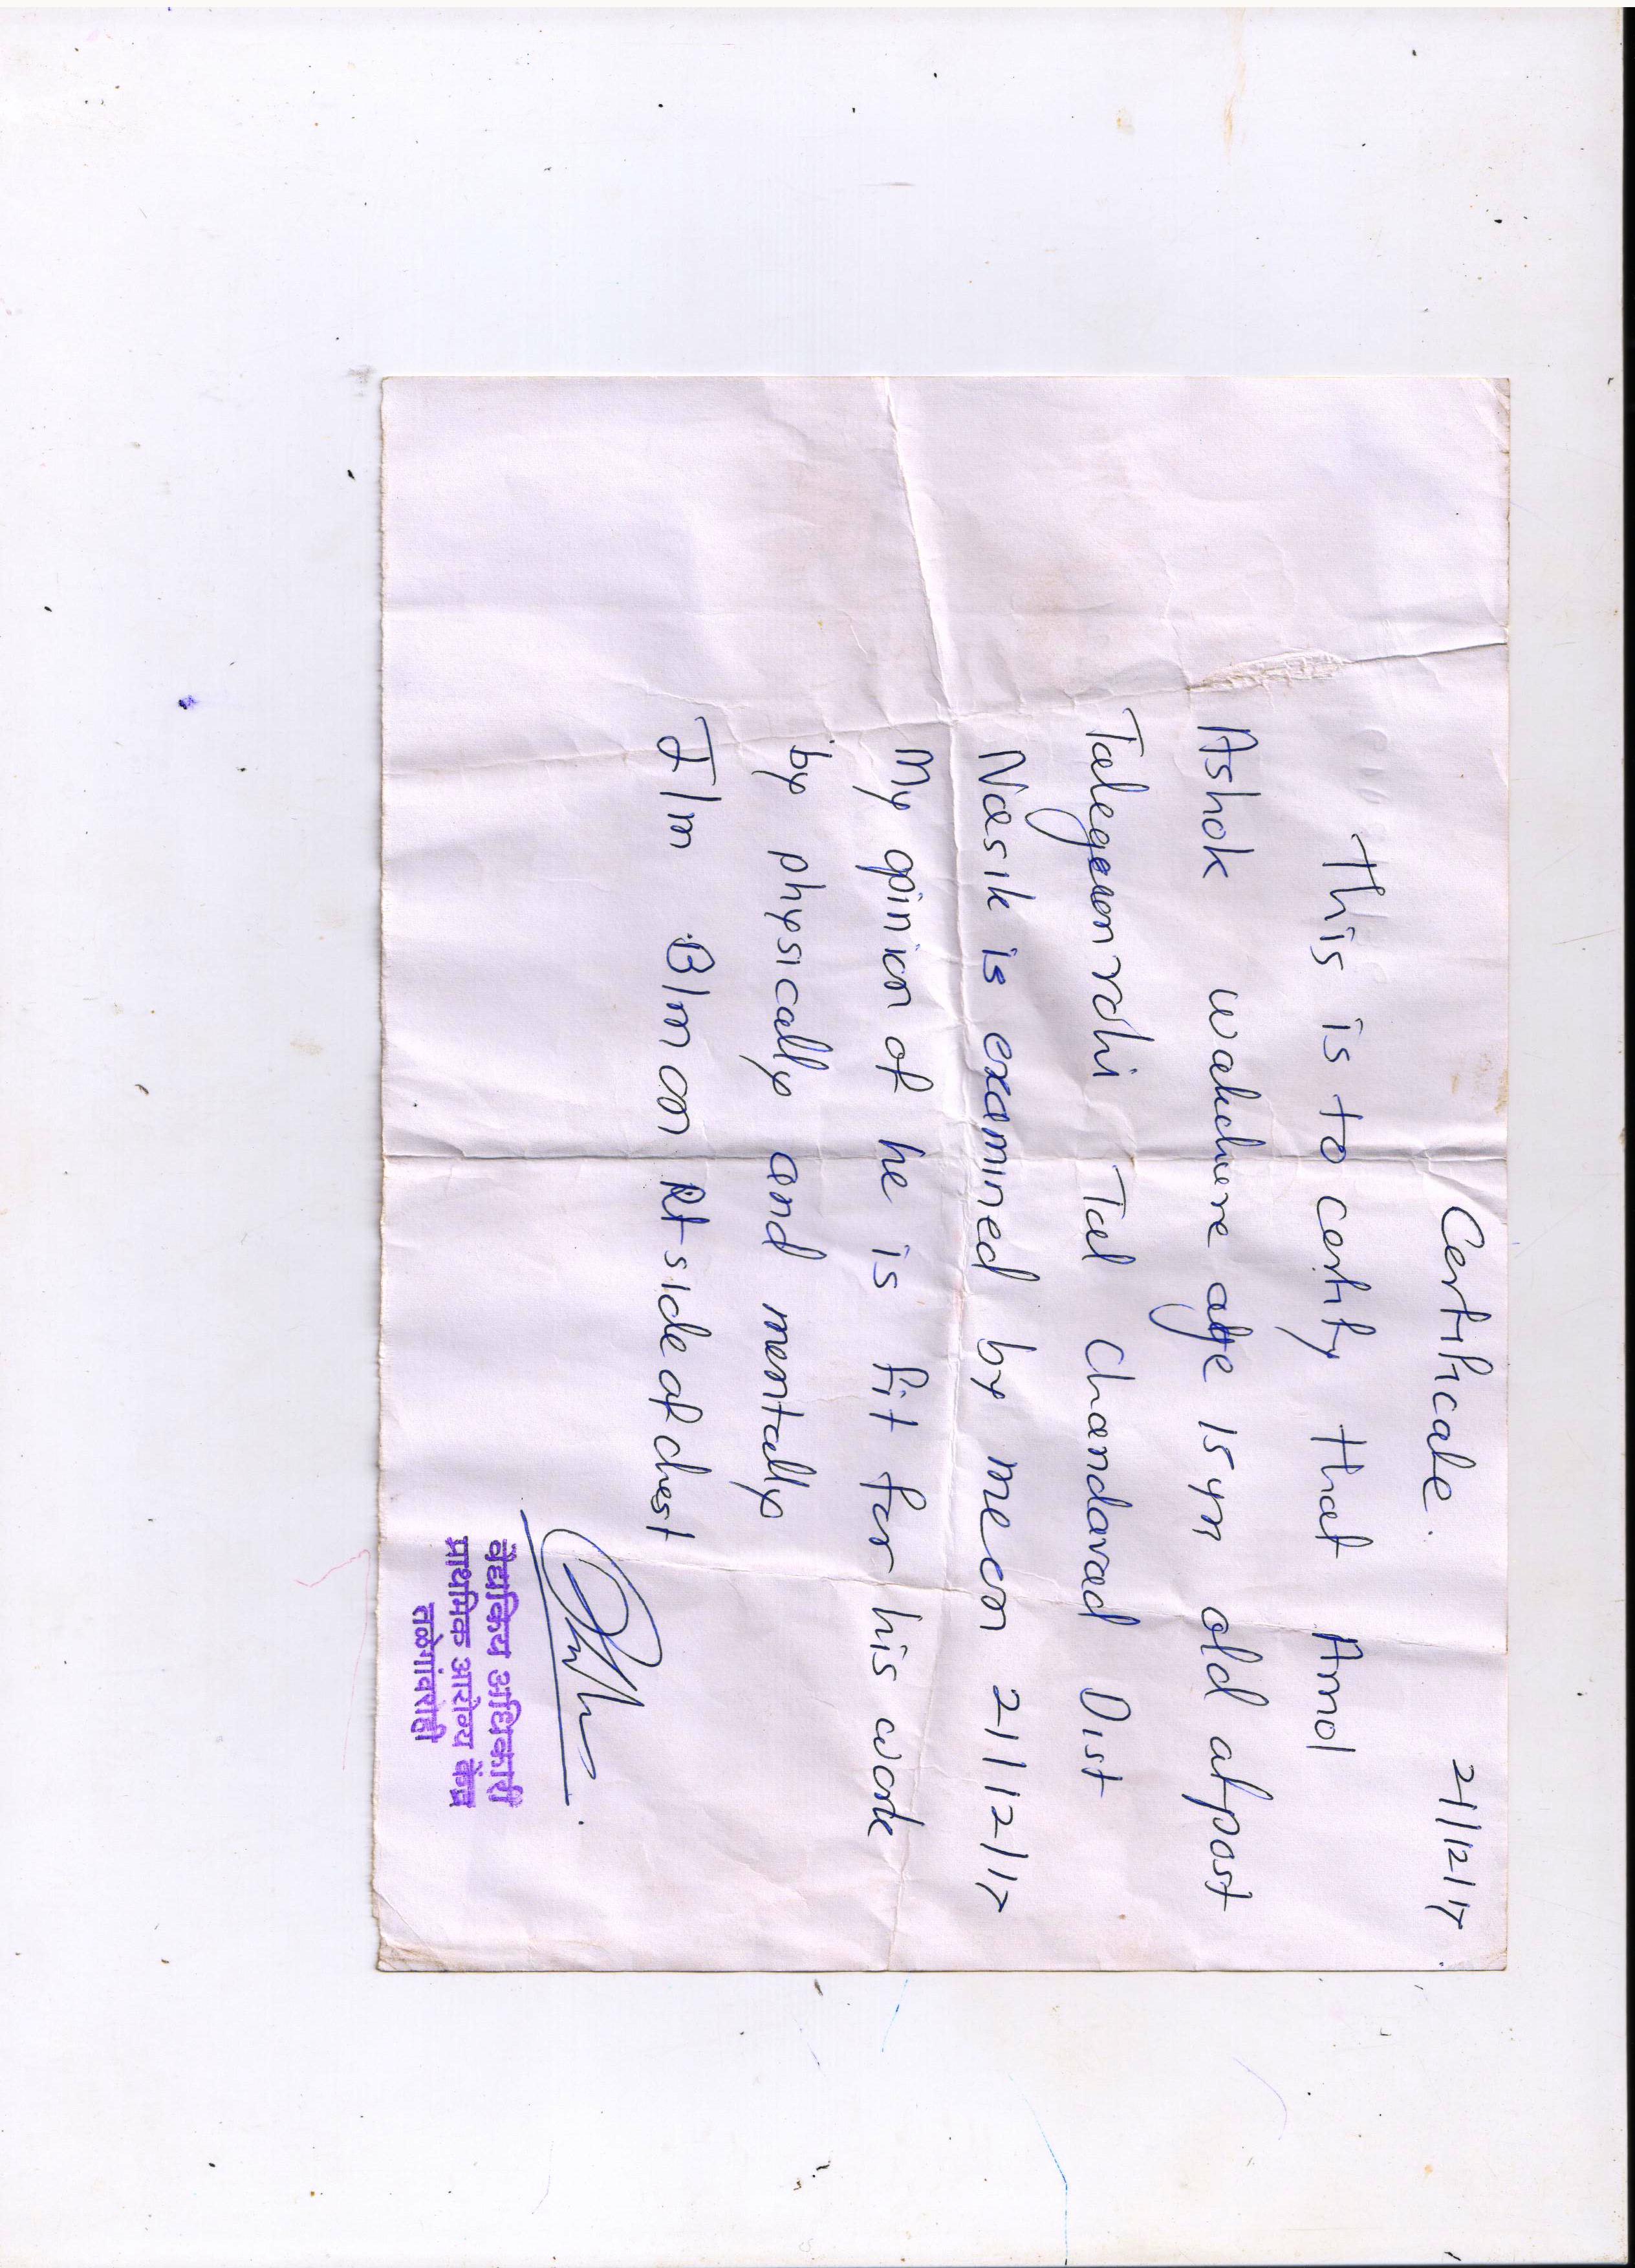 21/12/17
Certificate.
This is to certify that Amol
Ashok wakchure age 15 yr old at post
Talegaonrohi Tal Chandavad Dist
Nasik is examined by me on 21/12/17
My opinion of he is fit for his work
by physically and mentally
I/m B/m on Rt side of chest
वैद्यकिय अधिकारी
प्राथमिक आरोग्य केंद्र
तळेगांवरोही